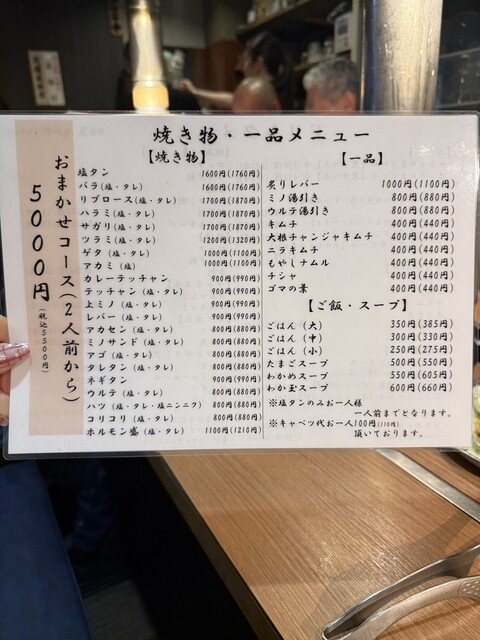 焼き物・一品メニュー
おまかせコース(2人前から)
5000円(税込5500円)
【焼き物】
塩タン 1600円(1760円)
バラ(塩・タレ) 1600円(1760円)
リブロース(塩・タレ) 1700円(1870円)
ハラミ(塩・タレ) 1700円(1870円)
サガリ(塩・タレ) 1700円(1870円)
ツラミ(塩・タレ) 1200円(1320円)
ゲタ(塩・タレ) 1000円(1100円)
アカミ(塩) 1000円(1100円)
カレーテッチャン 900円(990円)
テッチャン(塩・タレ) 900円(990円)
上ミノ(塩・タレ) 900円(990円)
レバー(塩・タレ) 900円(990円)
アカセン(塩・タレ) 800円(880円)
ミノサンド(塩・タレ) 800円(880円)
アゴ(塩・タレ) 800円(880円)
タレタン(塩・タレ) 800円(880円)
ネギタン 900円(990円)
ウルテ(塩・タレ) 800円(880円)
ハツ(塩・タレ・塩ニンニク) 800円(880円)
コリコリ(塩・タレ) 800円(880円)
ホルモン盛(塩・タレ) 1100円(1210円)
【一品】
炙りレバー 1000円(1100円)
ミノ湯引き 800円(880円)
ウルテ湯引き 800円(880円)
キムチ 400円(440円)
大根チャンジャキムチ 400円(440円)
ニラキムチ 400円(440円)
もやしナムル 400円(440円)
チシャ 400円(440円)
ゴマの葉 400円(440円)
【ご飯・スープ】
ごはん(大) 350円(385円)
ごはん(中) 300円(330円)
ごはん(小) 250円(275円)
たまごスープ 500円(550円)
わかめスープ 550円(605円)
わか玉スープ 600円(660円)
※塩タンのみお一人様
一人前までとなります。
※キャベツ代お一人100円(110円)
頂いております。